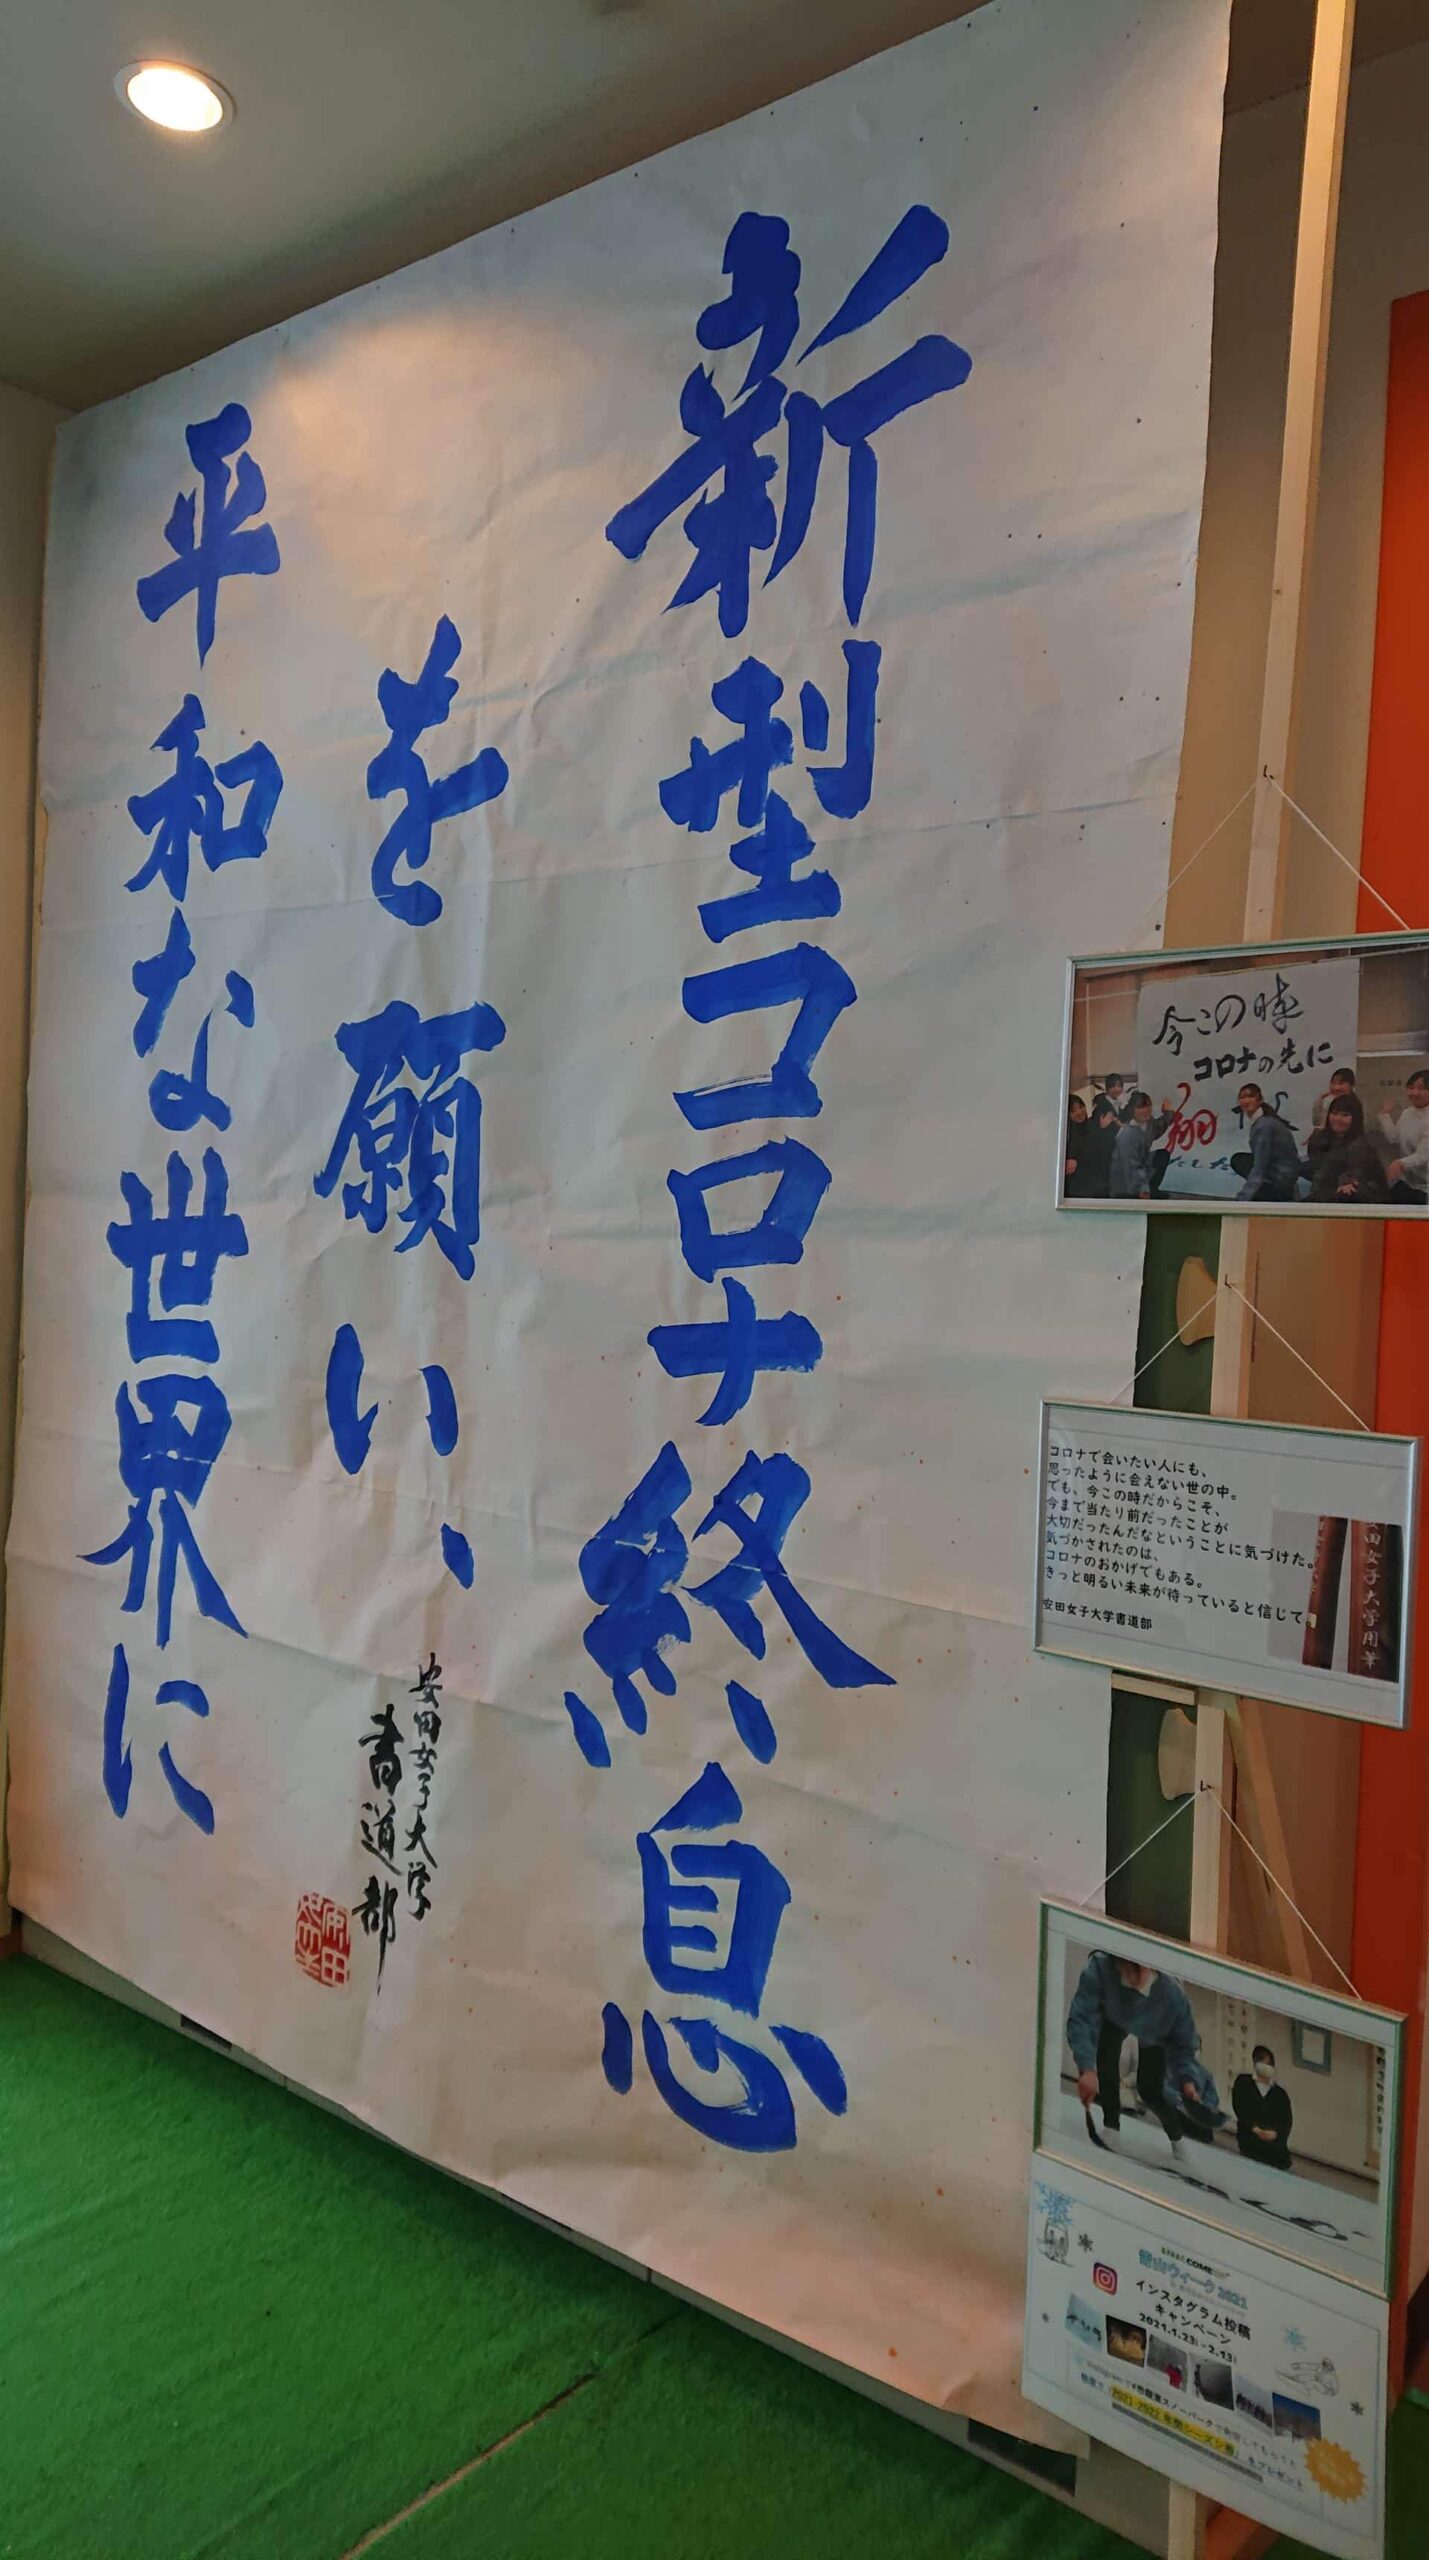 新型コロナ終息
を願い、
平和な世界に
安田女子大学
書道部
今この時
コロナの先に
翔
コロナで会いたい人にも、
思ったように会えない世の中。
でも、今この時だからこそ、
今まで当たり前だったことが
大切だったんだなということに気づけた。
気づかされたのは、
コロナのおかげでもある。
きっと明るい未来が待っていると信じて。
安田女子大学書道部
田女子大学用筆
雪山ウィーク2021
インスタグラム投稿
キャンペーン
2021.1.23-2.13